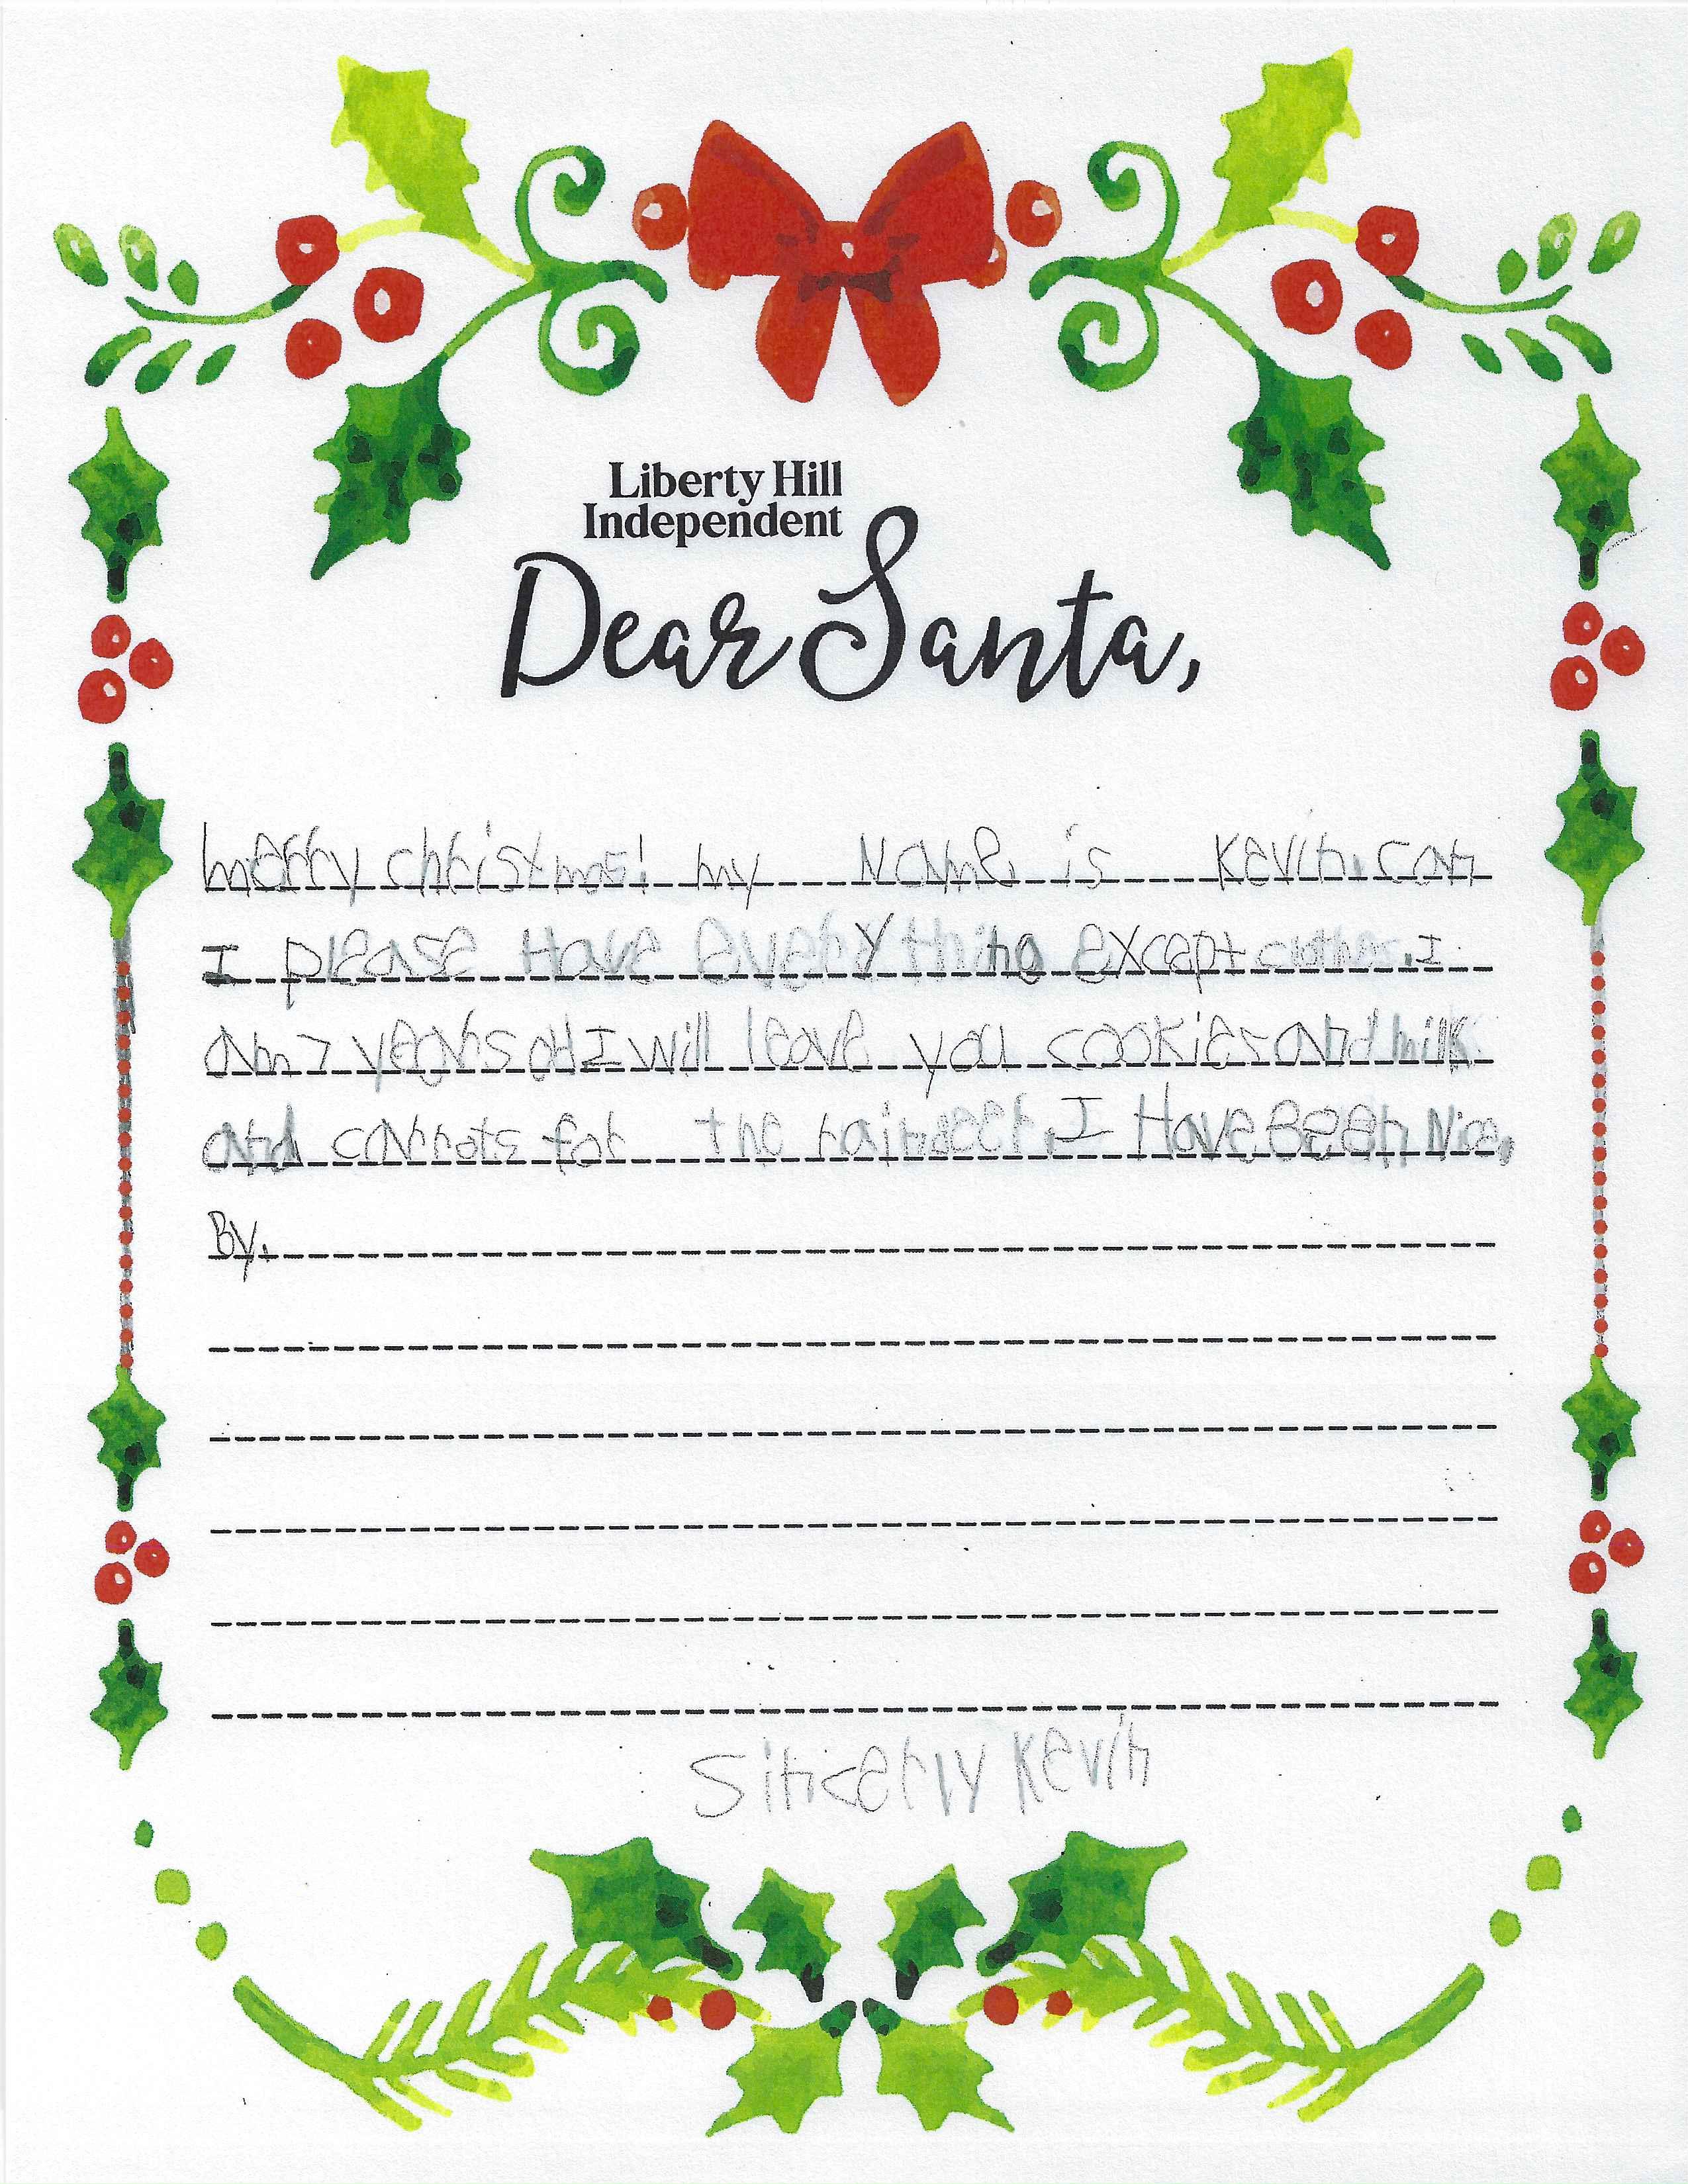 Liberty Hill
Independent
Dear Santa,
merry christmas! my Name is Kevin. can
I please Have every thing except clothes. I
am 7 years old I will leave you cookies and milk
and carrots for the raindeer. I Have Been Nice.
By.
Sincerly Kevin